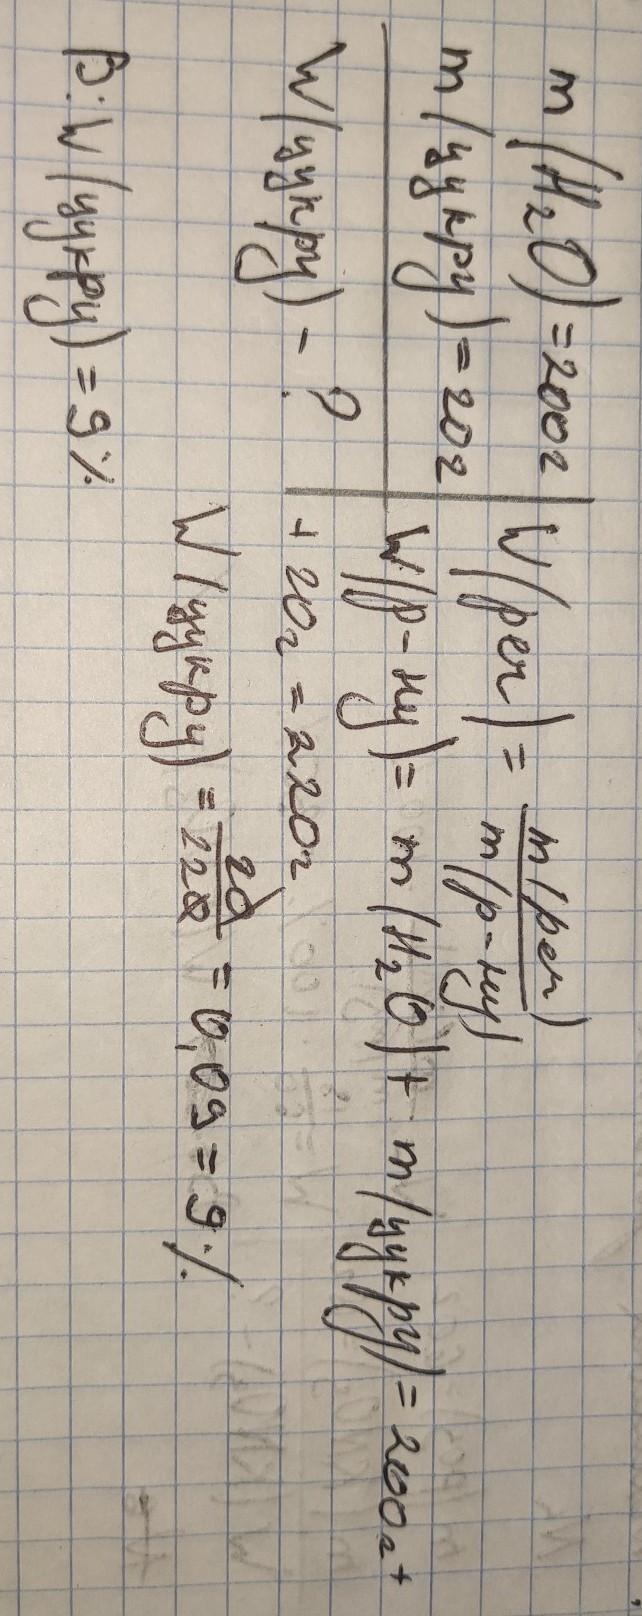 m(H₂O)=200г
m(цукру)=20г
W(цукру) - ?
W(реч) = m(реч)/m(р-ну)
W(р-ну) = m(H₂O) + m(цукру) = 200г +
+ 20г = 220г
W(цукру) = 20/220 = 0,09 = 9%
В: W(цукру) = 9%